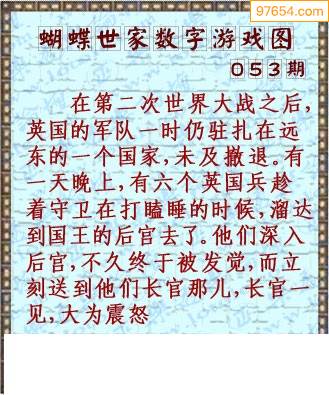 97654.com
蝴蝶世家数字游戏图
053期
在第二次世界大战之后,
英国的军队一时仍驻扎在远
东的一个国家,未及撤退。有
一天晚上,有六个英国兵趁
着守卫在打瞌睡的时候,溜达
到国王的后宫去了。他们深入
后宫,不久终于被发觉,而立
刻送到他们长官那儿,长官一
见,大为震怒